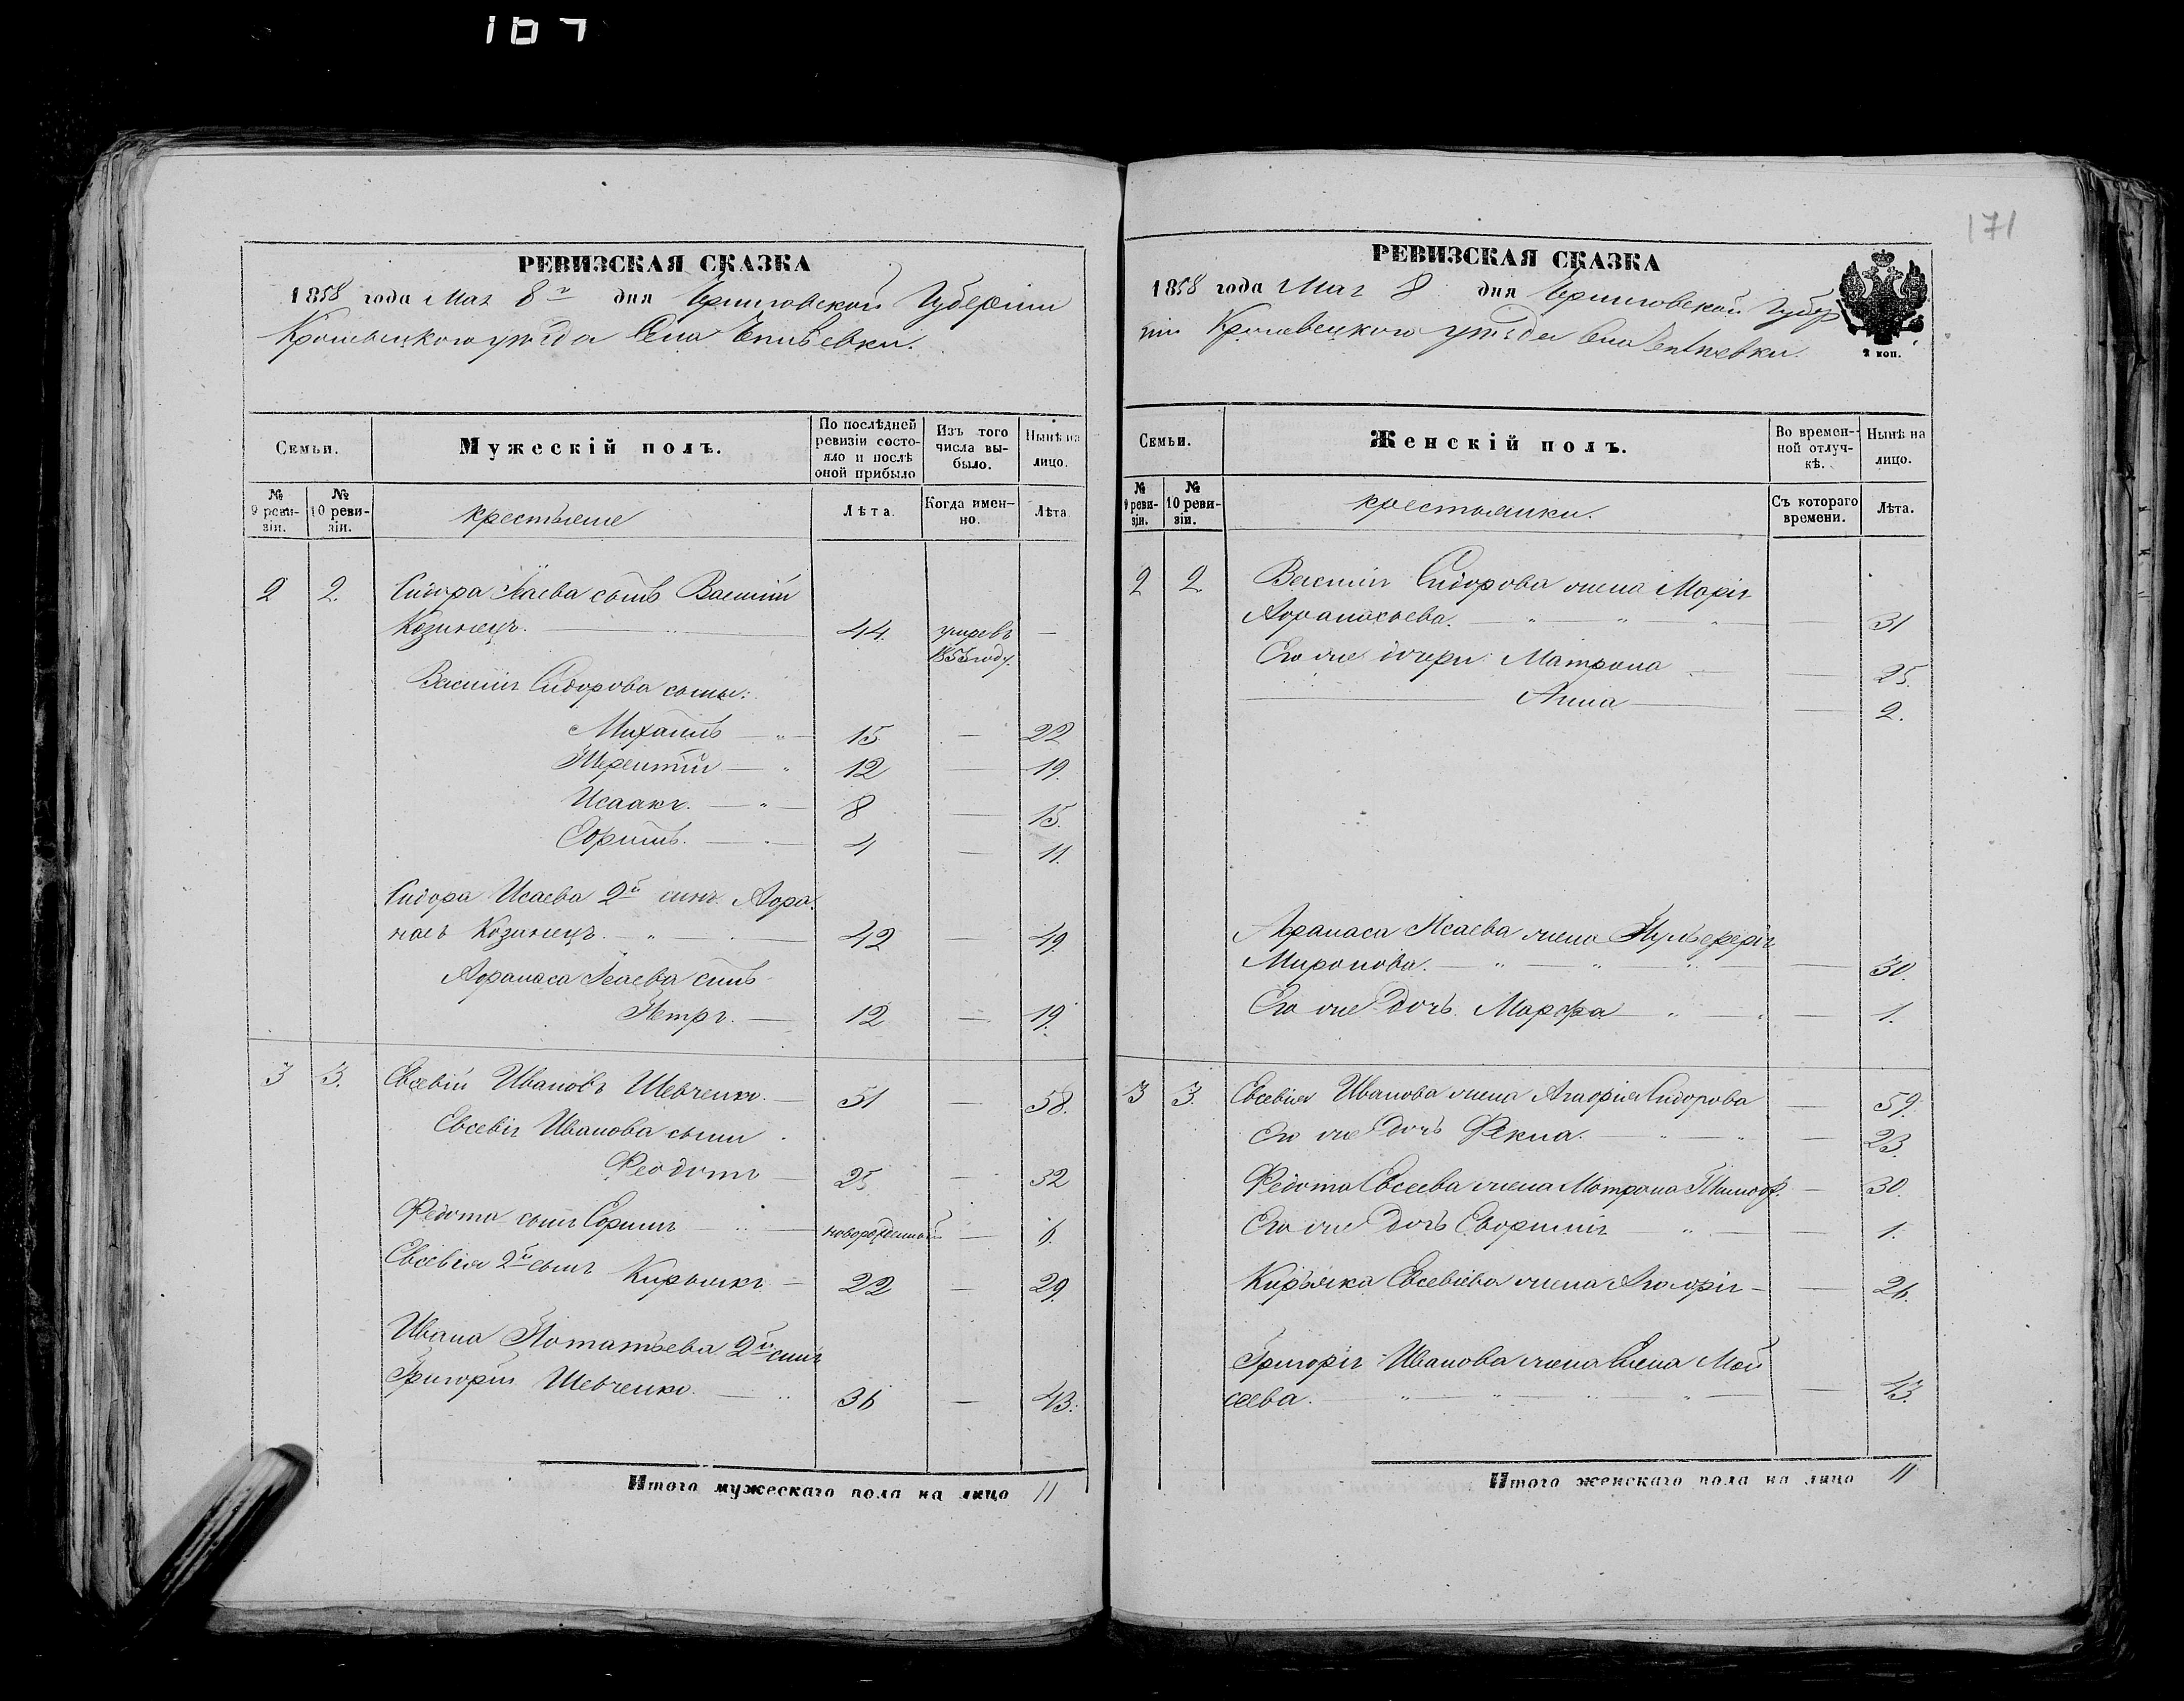 167
171
РЕВИЗСКАЯ СКАЗКА
1858 года Мая 8го дня Черниговской Губерніи
Кролевецкого уѣзда Села
Семьи. Мужескій полъ. По послѣдней ревизіи состояло и послѣ оной прибыло Изъ того числа выбыло. Нынѣ на лицо.
№ 9 ревизіи. № 10 ревизіи. крестьяне Лѣта. Когда именно. Лѣта
2 2. Сидора Исаева сынъ Василій
Козинецъ. 44. умеръ —
1853 году.
Василія Сидорова сыны:
Михаилъ — " — 15 — 22
Терентій — " 12 — 19.
Исаакъ. — " — 8 — 15.
Ефримъ. — " — 4 — 11.
Сидора Исаева 2й сынъ Афана
насъ Козинецъ. — " 42 49.
Афанаса Исаева сынъ
Петръ. — 12 — 19.
3 3. Евсевій Ивановъ Шевченко. — 51 — 58.
Евсевія Иванова сыны
Феодотъ — 25 — 32
Федота сынъ Ефримъ — " — новорожденный — 6.
Евсевія 2й сынъ Кирьякъ — 22 — 29.
Ивана Потапьева 2й сынъ
Григорій Шевченко. — " 36 — 43.
Итого мужескаго пола на лицо 11
РЕВИЗСКАЯ СКАЗКА
1858 года Мая 8 дня Черниговской Губер
ніи Кролевецкого уѣзда Села
2 коп.
Семьи. Женскій полъ. Во временной отлучкѣ. Нынѣ на лицо.
№ 9 ревизіи. № 10 ревизіи. крестьянки. Съ котораго времени. Лѣта.
2 2. Василія Сидорова жена Марія
Афанасьева. — " — " — " — 31
Его же дочери Матрона — — 25.
— Анна — — 2.
Афанаса Исаева жена Пульферія
Миронова. — " — " — " — 30.
Его же дочь Марфа — " — — 1.
3 3. Евсевія Иванова жена Агафія Сидорова — 59.
Его же дочь Фекла. — " — " — 23.
Федота Евсеева жена Матрона Тимоф. — 30.
Его же дочь — " — 1.
Кирьяка Евсевіева жена Агафія — — 26.
Григорія Иванова жена Елена Мой
сеева. — " — " — " — " — 43.
Итого женскаго пола на лицо 11